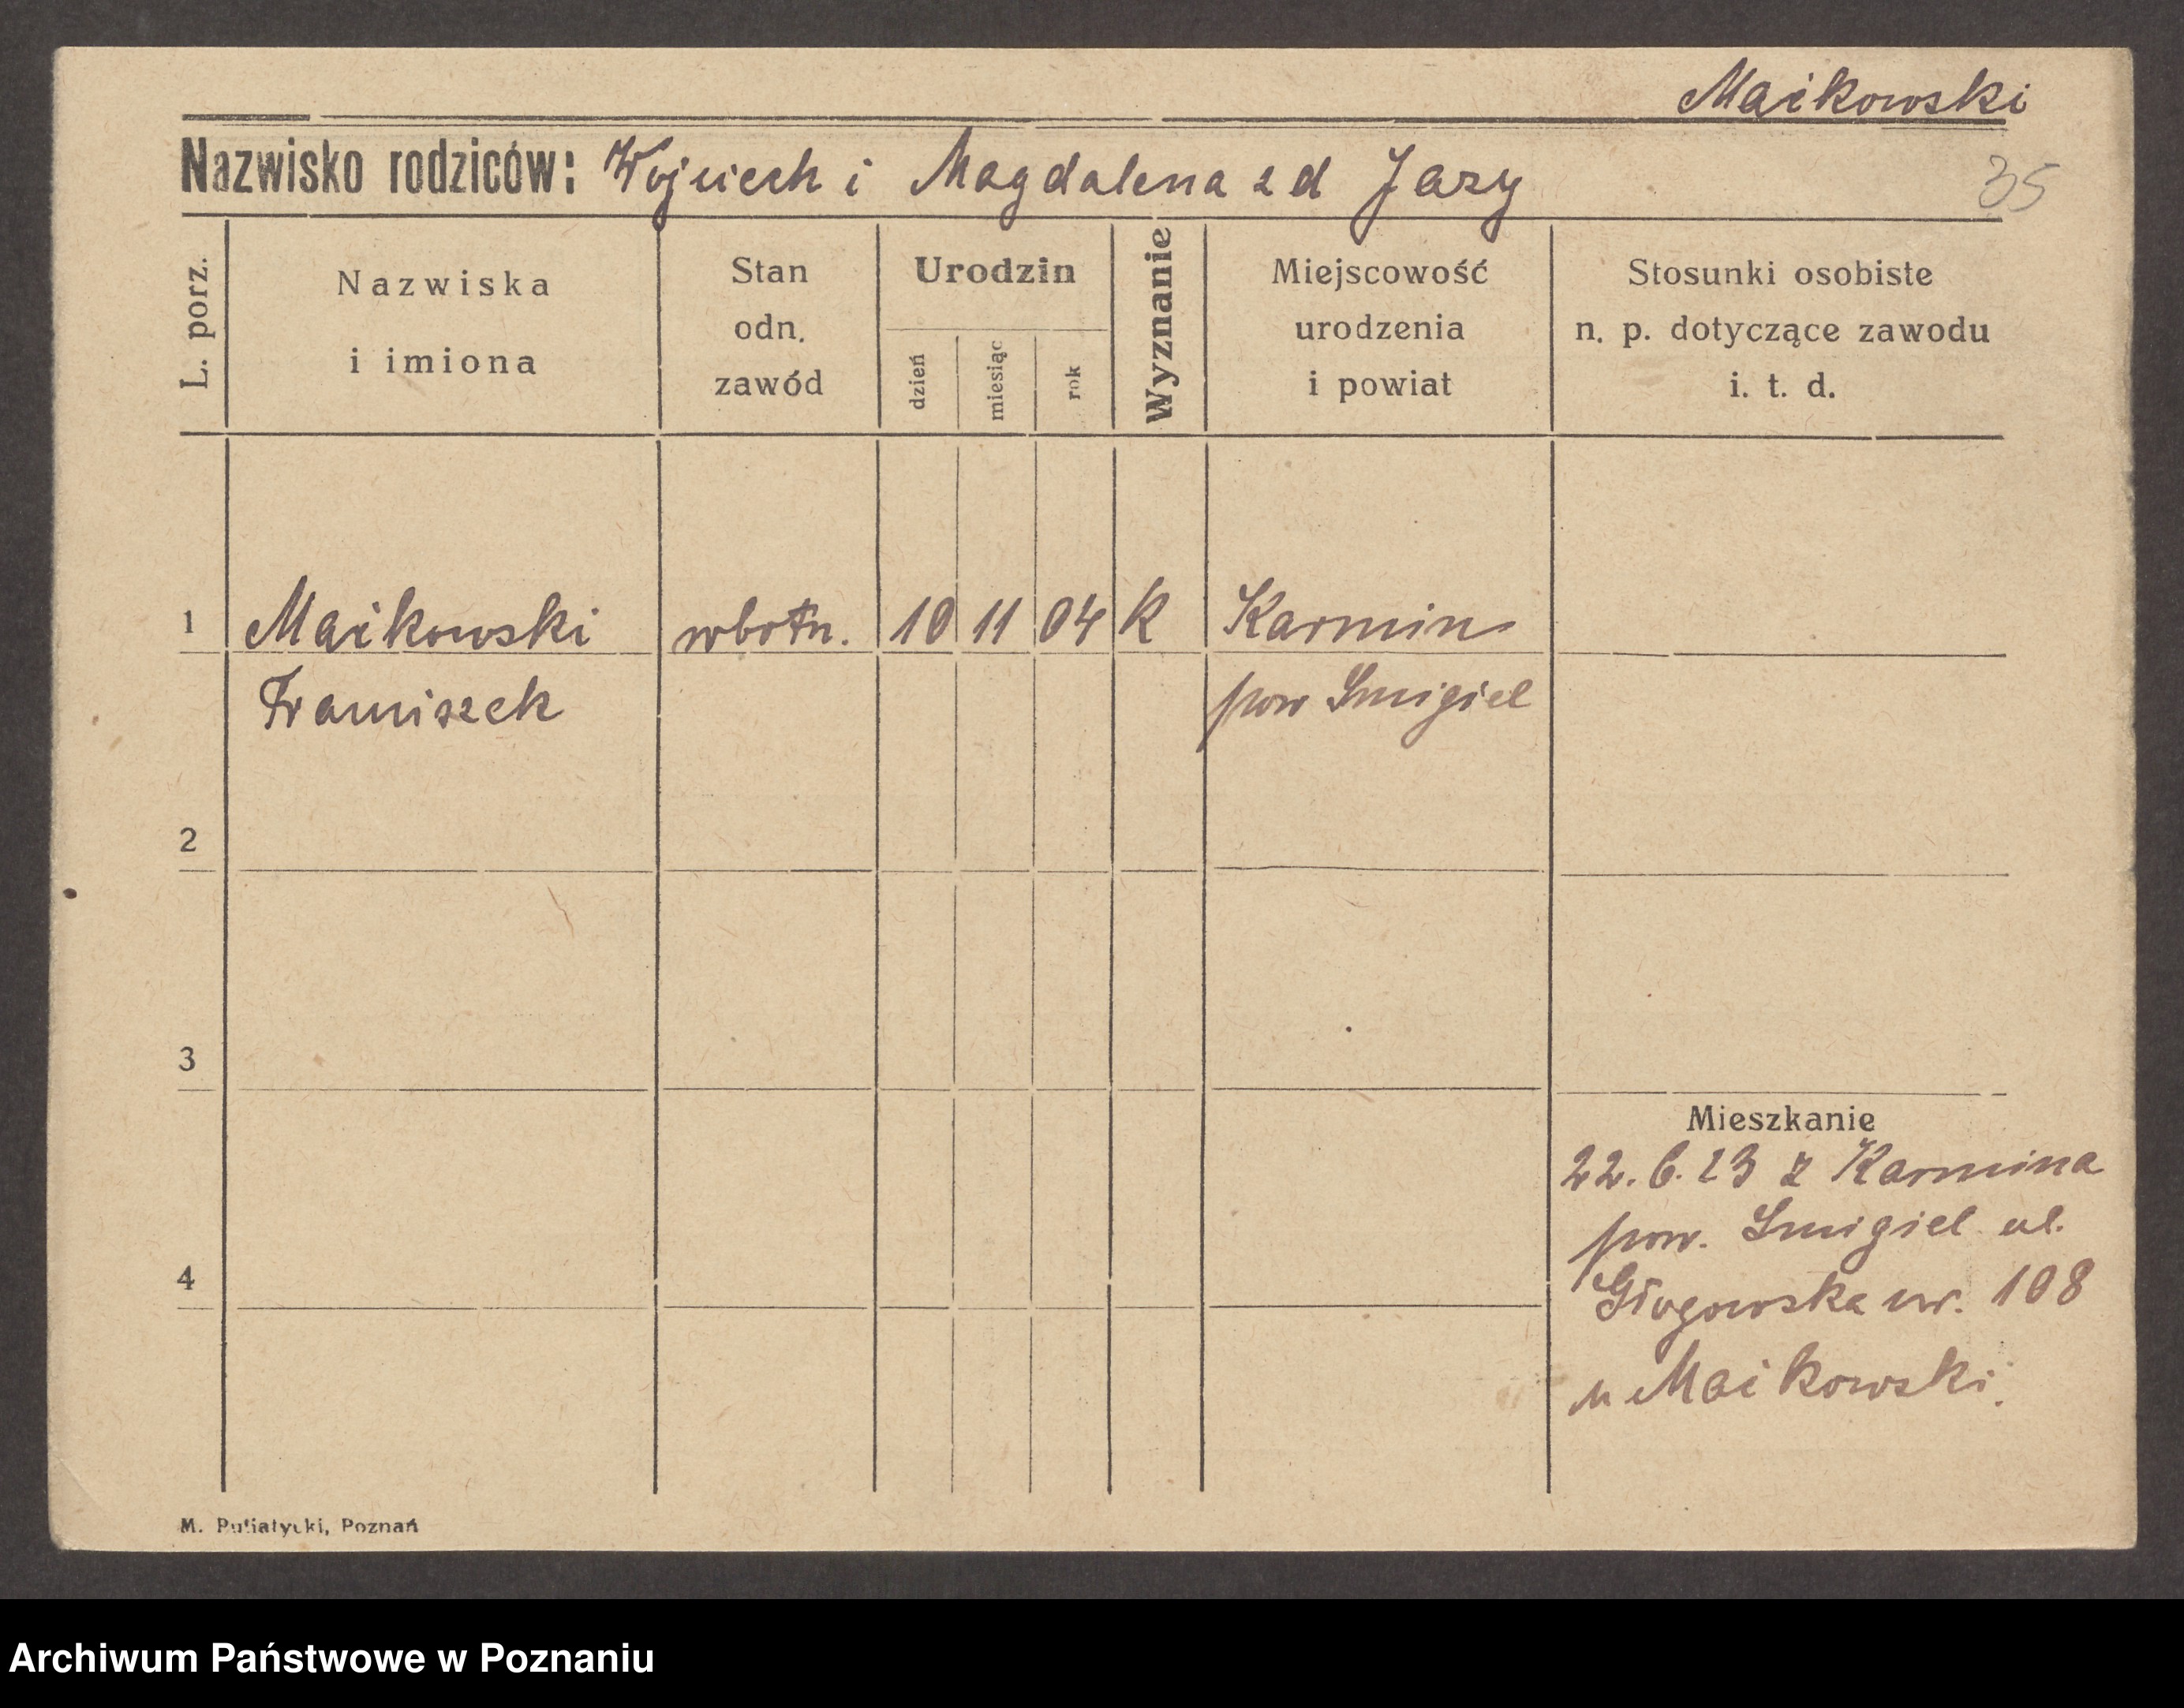 Maikowski
Nazwisko rodziców: Wojciech i Magdalena z d Jazy
35
L. porz.
Nazwiska
i imiona
Stan
odn.
zawód
Urodzin
dzień
miesiąc
rok
Wyznanie
Miejscowość
urodzenia
i powiat
Stosunki osobiste
n. p. dotyczące zawodu
i. t. d.
1 Maikowski robotn. 10 11 04 k Karmin
Franciszek pow Smigiel
2
3
Mieszkanie
22. 6. 23 z Karmina
pow. Smigiel ul.
4
Głogowska nr. 108
u Maikowski.
M. Putiatycki, Poznań
Archiwum Państwowe w Poznaniu